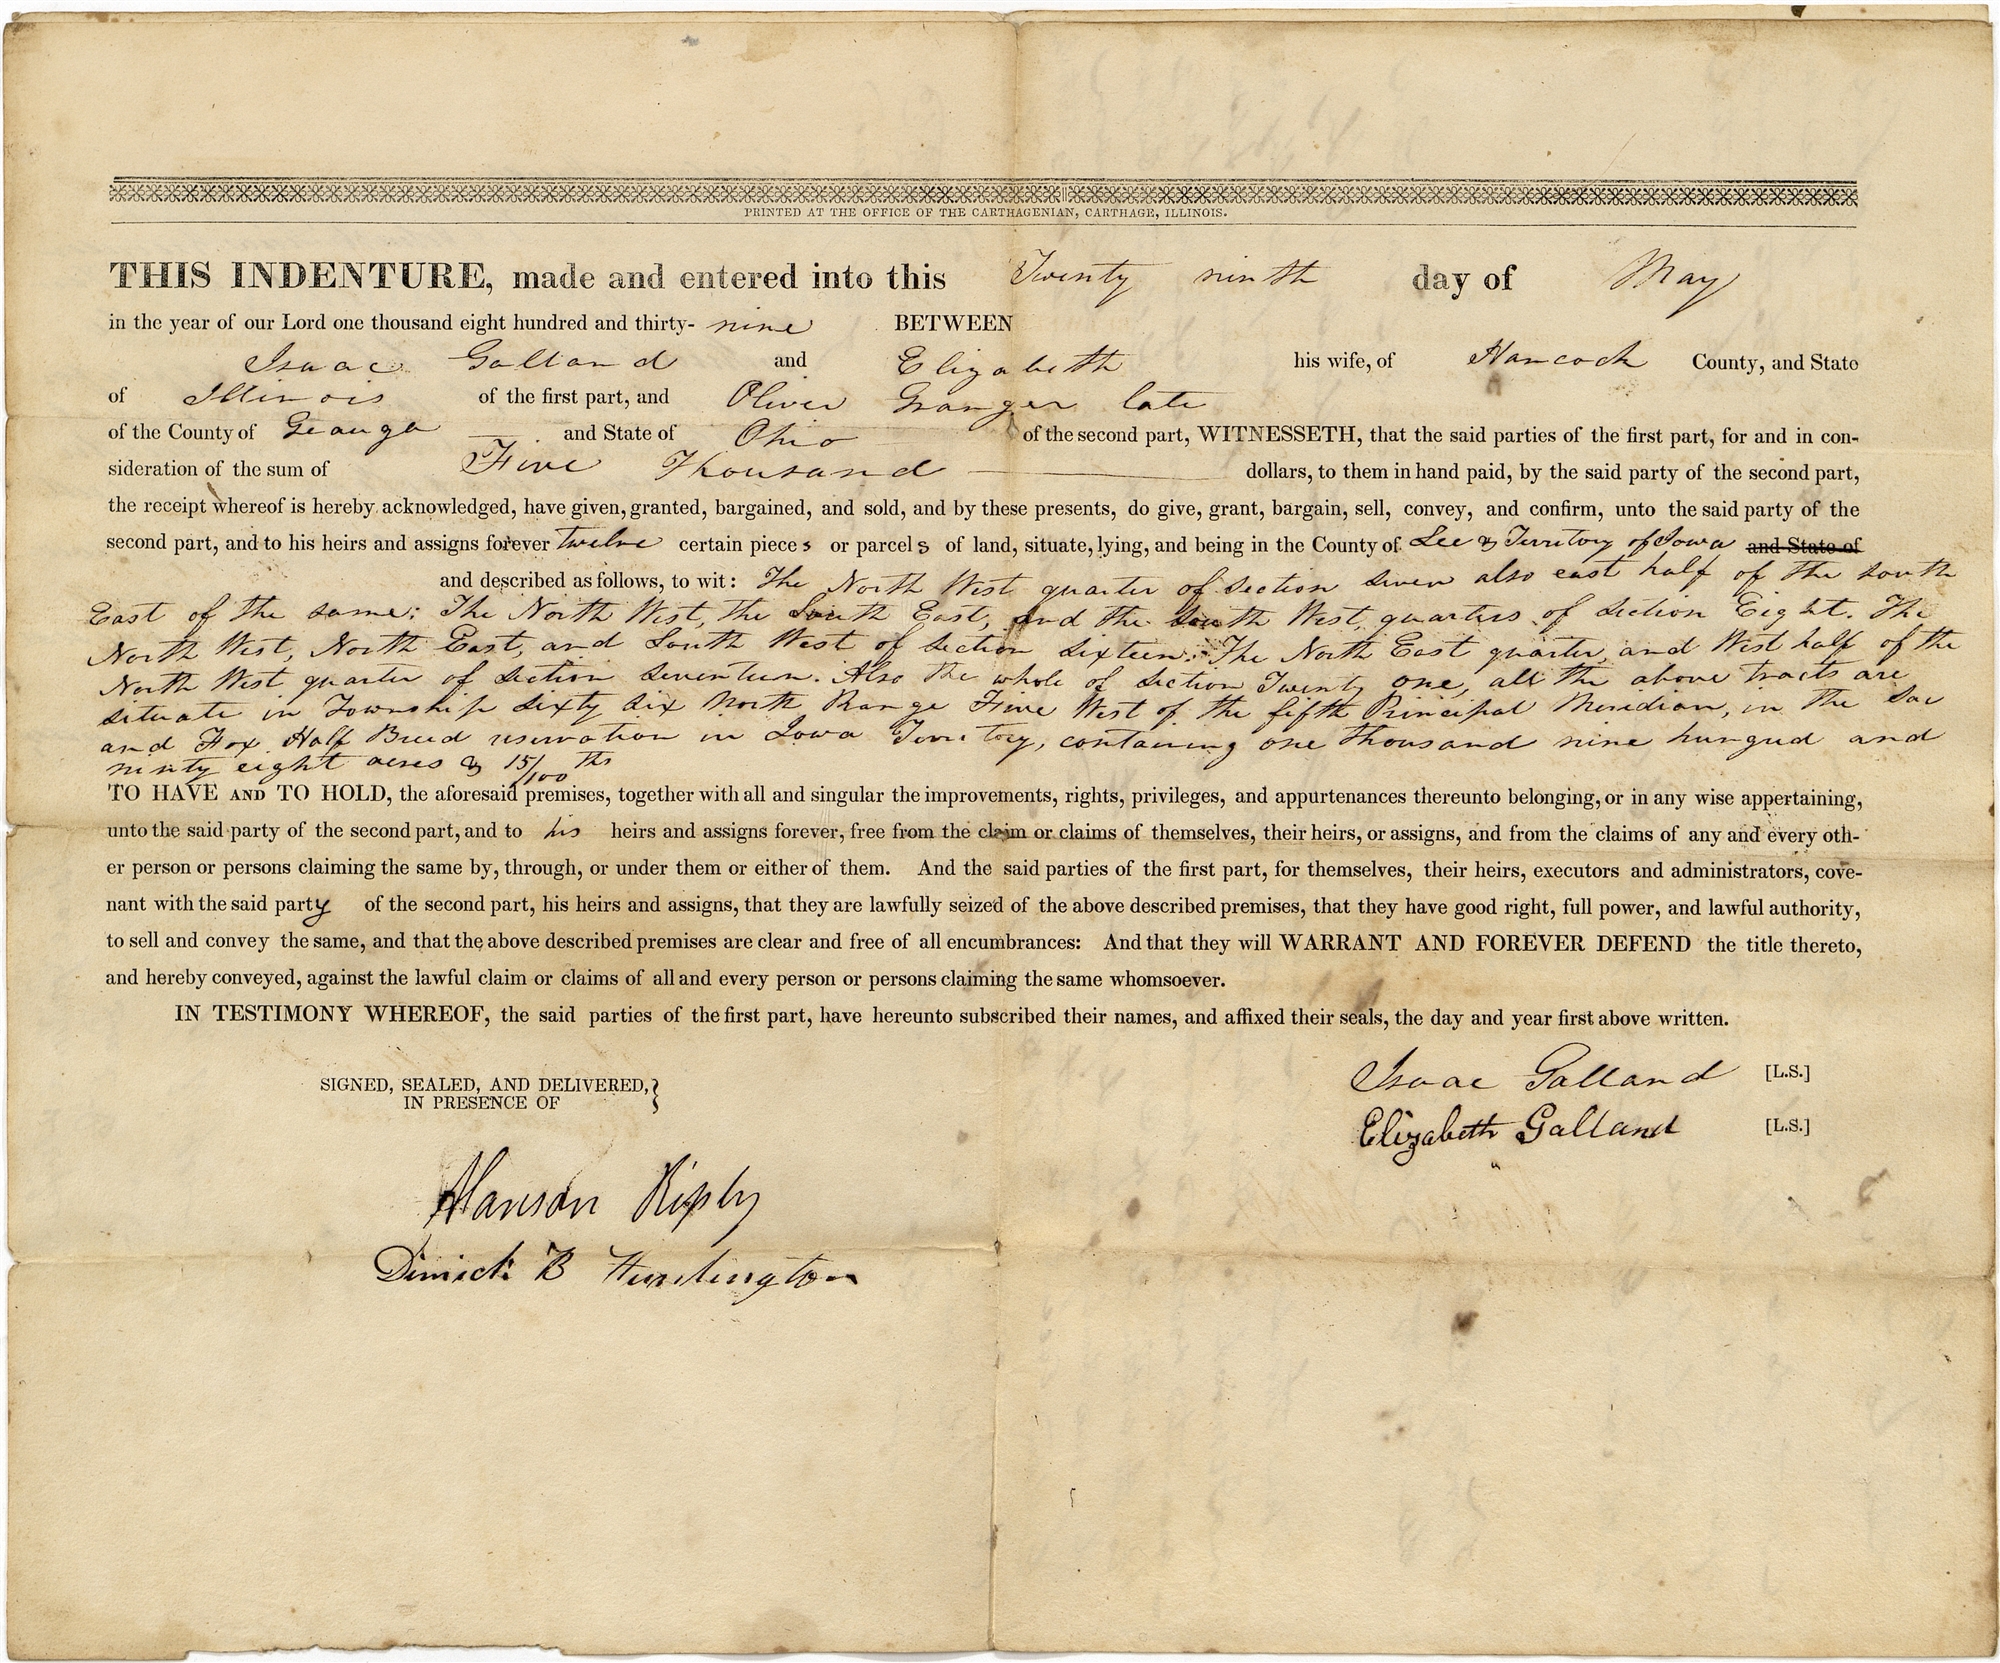 PRINTED AT THE OFFICE OF THE CARTHAGENIAN, CARTHAGE, ILLINOIS.
THIS INDENTURE, made and entered into this Twenty ninth day of May
in the year of our Lord one thousand eight hundred and thirty- nine BETWEEN
Isaac Galland and Elizabeth his wife, of Hancock County, and State
of Illinois of the first part, and Oliver Granger late
of the County of Geauga and State of Ohio of the second part, WITNESSETH, that the said parties of the first part, for and in con-
sideration of the sum of Five Thousand dollars, to them in hand paid, by the said party of the second part,
the receipt whereof is hereby acknowledged, have given, granted, bargained, and sold, and by these presents, do give, grant, bargain, sell, convey, and confirm, unto the said party of the
second part, and to his heirs and assigns forever twelve certain pieces or parcels of land, situate, lying, and being in the County of Lee & Territory of Iowa and State of
and described as follows, to wit: The North West quarter of Section seven also east half of the south
East of the same: The North West, the South East, and the South West, quarters of Section Eight. The
North West, North East, and South West of Section Sixteen. The North East quarter, and West half of the
North West quarter of Section Seventeen. Also the whole of Section Twenty one, all the above tracts are
situate in Township Sixty Six North Range Five West of the fifth Principal Meridian, in the Sac
and Fox Half Breed reservation in Iowa Territory, containing one thousand nine hungred and
ninty eight acres & 15/100 ths
TO HAVE AND TO HOLD, the aforesaid premises, together with all and singular the improvements, rights, privileges, and appurtenances thereunto belonging, or in any wise appertaining,
unto the said party of the second part, and to his heirs and assigns forever, free from the claim or claims of themselves, their heirs, or assigns, and from the claims of any and every oth-
er person or persons claiming the same by, through, or under them or either of them. And the said parties of the first part, for themselves, their heirs, executors and administrators, cove-
nant with the said party of the second part, his heirs and assigns, that they are lawfully seized of the above described premises, that they have good right, full power, and lawful authority,
to sell and convey the same, and that the above described premises are clear and free of all encumbrances: And that they will WARRANT AND FOREVER DEFEND the title thereto,
and hereby conveyed, against the lawful claim or claims of all and every person or persons claiming the same whomsoever.
IN TESTIMONY WHEREOF, the said parties of the first part, have hereunto subscribed their names, and affixed their seals, the day and year first above written.
Isaac Galland [L.S.]
SIGNED, SEALED, AND DELIVERED,}
IN PRESENCE OF
Elizabeth Galland [L.S.]
Vanson Ripley
Dimick B Huntington